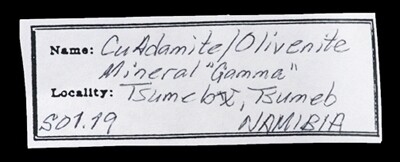 Name: CuAdamite/Olivenite
Mineral "Gamma"
Locality: Tsumeb, Tsumeb
S01.19 NAMIBIA